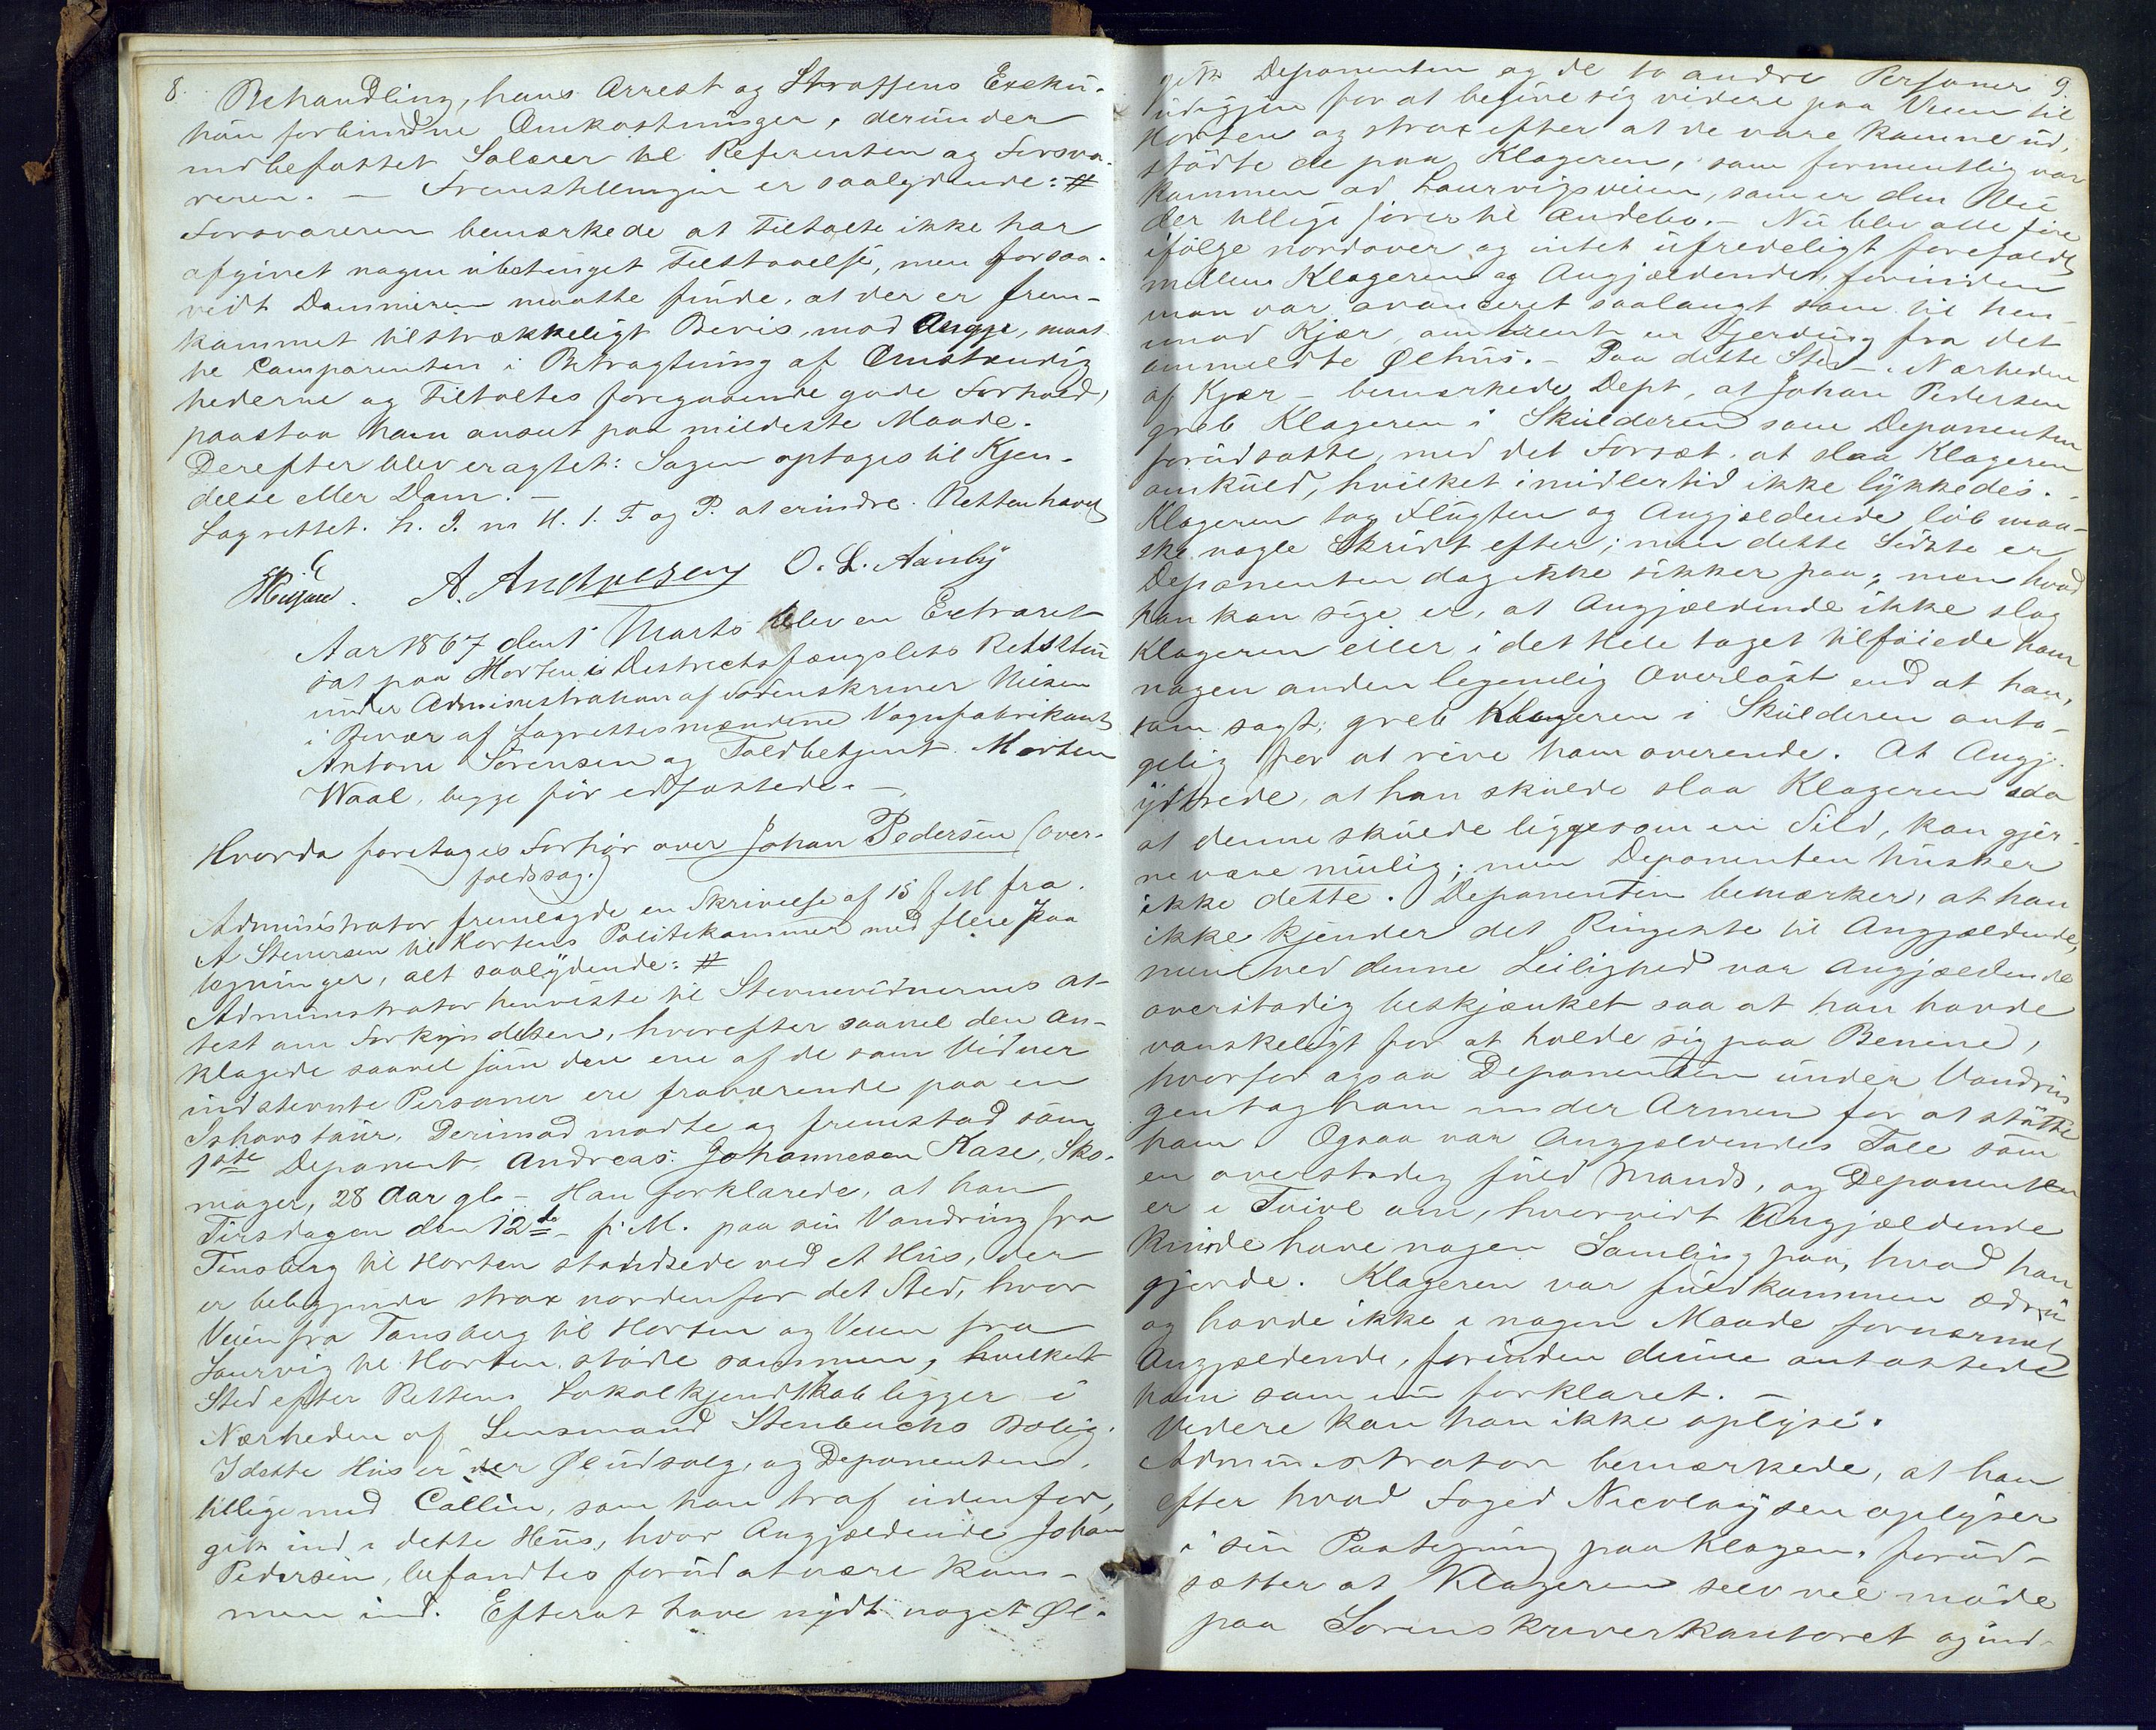 8.
Behandling, hans Arrest og Straffens Exeku-
tion forbundne Omkostninger, derunder
indbefattet Salærer til Referenten og Forsva-
reren. — Fremstillingen er saalydende: #
Forsvareren bemærkede at Tiltalte ikke har
afgivet nogen ubetinget Tilstaaelse, men forsaa-
vidt Dommeren maatte finde, at der er frem-
kommet tilstrækkeligt Bevis mod Angje, maat-
te Comparenten i Betragtning af Omstændig-
hederne og Tiltaltes foregaaende gode Forhold,
paastaa ham anseet paa mildeste Maade.
Derefter blev eragtet: Sagen optages til Kjen-
delse eller Dom. —
Lagrettet. h. I. m U. 1. F. og P. at erindre. Retten hævet
Nielsen. A. Andresen O. L. Aanby
Aar 1867 den 1 Marts blev en Extraret
sat paa Horten i Distriktsfængslets Retsstue
under Administration af Sorenskriver Nielsen
i Overvær af Lagrettesmændene Vognfabrikant
Antoni Sørensen og Toldbetjent Morten
Waal, begge før edfæstede. —
Hvorda foretages Forhør over Johan Pedersen (Over-
faldssag.)
Administrator fremlagde en Skrivelse af 15 f M fra
A Stenersen til Hortens Politikammer med flere Paa
tegninger, alt saalydende: #
Administrator henviste til Stevnevidnernes at-
test om Forkyndelsen, hvorefter saavel den an-
klagede saavel som den ene af de som Vidner
indstevnte Personer ere fraværende paa en
Ishavstour. Derimod mødte og fremstod som
1ste Deponent Andreas Johannesen Kase, Sko-
mager, 28 Aar gl. — Han forklarede, at han
Tirsdagen den 12te f. M. paa sin Vandring fra
Tønsberg til Horten standsede ved et Huus, der
er beliggende strax nordenfor det Sted, hvor
Veien fra Tønsberg til Horten og Veien fra
Laurvig til Horten støde sammen, hvilket
Sted efter Rettens Lokalkjendskab ligger i
Nærheden af Lensmand Stenbuchs Bolig.
I dette Huus er der Øludsalg, og Deponenten,
tillige med Callin, som han traf udenfor,
gik ind i dette Huus, hvor Angjældende Johan
Pedersen, befandtes forud at være kom-
men ind. Efterat have nydt noget Øl
9.
gik Deponenten og de to andre Personer
ud igjen for at begive sig videre paa Veien til
Horten og strax efter at de vare komne ud,
stødte de paa Klageren, som formentlig var
kommen ad Laurvigsveien, som er den Vei
der tillige fører til Andebo. — Nu blev alle fire
ifølge nordover og intet ufredeligt forefaldt
mellem Klageren og Angjældende, forinden
man var avanceret saalangt som til hen-
imod Kjær, omtrent en Fjerding fra det
ommeldte Ølhuus. — Paa dette Sted — i Nærheden
af Kjær — bemærkede Dept, at Johan Pedersen
greb Klageren i Skulderen som Deponenten
forudsatte, med det Forsæt at slaa Klageren
omkuld, hvilket imidlertid ikke lykkedes. —
Klageren tog Flugten og Angjældende løb maa-
ske nogle Skridt efter; men dette Sidste er
Deponenten dog ikke sikker paa; men hvad
han kan sige er, at Angjældende ikke slog
Klageren eller i det Hele taget tilføiede ham
nogen anden legemlig Overlast end at han,
som sagt, greb Klageren i Skulderen anta-
gelig for at rive ham overende. At Angj.
yttrede, at han skulde slaa Klageren saa
at denne skulde ligge som en Sild, kan gjer-
ne være mulig; men Deponenten husker
ikke dette. Deponenten bemærker, at han
ikke kjender det Ringeste til Angjældende,
men ved denne Leilighed var Angjældende
overstadig beskjænket saa at han havde
vanskeligt for at holde sig paa Benene,
hvorfor ogsaa Deponenten under Vandrin
gen tog ham under Armen for at støtte
ham. Ogsaa var Angjældendes Tale som
en overstadig fuld Mands, og Deponenten
er i Tvivl om, hvorvidt Angjældende
kunde have nogen Samling paa, hvad han
gjorde. Klageren var fuldkommen ædru
og havde ikke i nogen Maade fornærmet
Angjældende, forinden denne antastede
ham som nu forklaret. —
Videre kan han ikke oplyse.
Administrator bemærkede, at han
efter hvad Foged Nicolaysen oplyser
i sin Paategning paa Klagen, forud-
sætter at Klageren selv vil møde
paa Sorenskriverkontoret og ind-